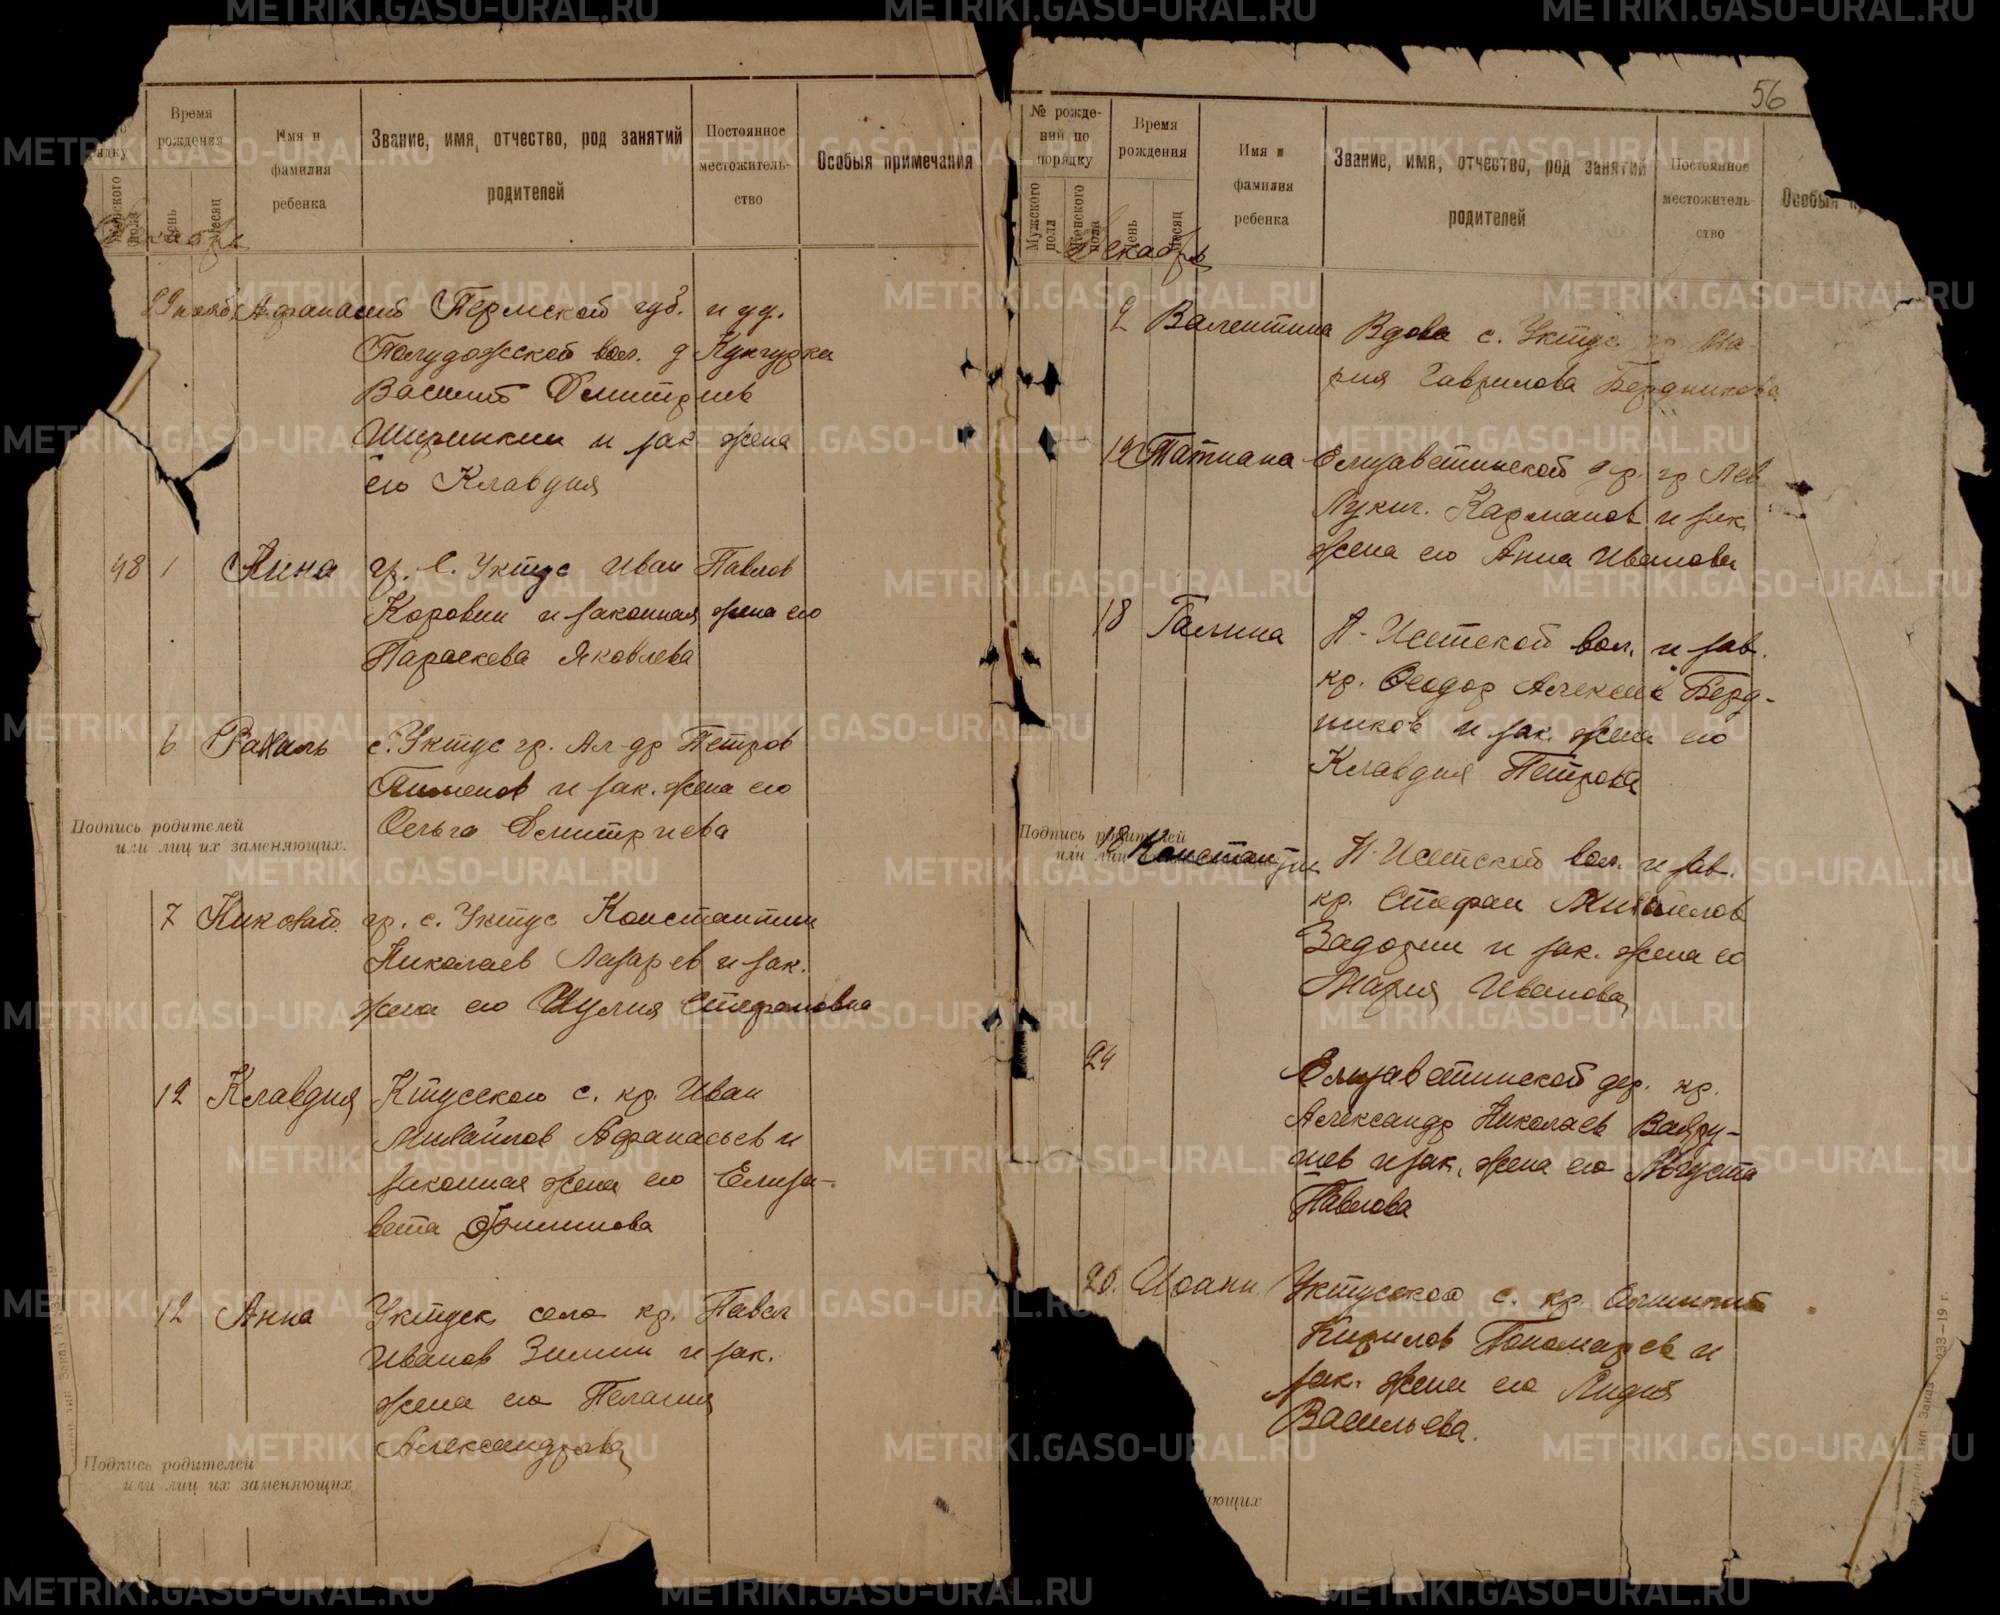 METRIKI.GASO-URAL.RU
56
Время
рождения
Имя и
фамилия
ребенка
Звание, имя, отчество, род занятий
родителей
Постоянное
местожитель-
ство
Особыя примечания
рядку
Женского
пола
День
Месяц
Декабрь
29 нояб. Афанасий Пермской губ. и уу.
вол. д Кунгурка
Василий Дмитриев
Ширинкин и зак. жена
его Клавдия
48 1 Анна гр. С. Уктус Иван Павлов
Коровин и законная жена его
Параскева Яковлева
6 Рахиль с. Уктус гр. Ал-др Петров
Пименов и зак. жена его
Ольга Дмитриева
Подпись родителей
или лиц их заменяющих.
7 Николай гр. с. Уктус Константин
Николаев Лазарев и зак.
жена его Иулия Стефановна
12 Клавдия Ктусского с. кр. Иван
Михайлов Афанасьев и
законная жена его Елиза-
вета Филиппова
12 Анна Уктуск село кр. Павел
Иванов Зимин и зак.
жена его Пелагия
Александрова
Подпись родителей
или лиц их заменяющих
№ рожде-
ний по
порядку
Мужского
пола
Женского
пола
Время
рождения
День
Месяц
Имя и
фамилия
ребенка
Звание, имя, отчество, род занятий
родителей
Постоянное
местожитель-
ство
Особыя
Декабрь
9 Валентина Вдова с. Уктус гр Ма-
рия Гаврилова Бердникова
12 Татиана Елизаветинской др. гр Лев
Лукич. Карманов и зак.
жена его Анна Иванова
18 Галина Н-Исетской вол. и зав.
кр. Феодор Алексеев Берд-
ников и зак. жена его
Клавдия Петрова
Подпись родителей
или лиц
18 Константин Н-Исетской вол. и зав.
кр. Стефан Михаилов
Задорин и зак. жена его
Мария Иванова
24 Елизаветинской дер. кр.
Александр Николаев Вавру-
шев и зак. жена его Августа
Павлова
26. Иоанн Уктусского с. кр.
Кирилов Пономарев и
зак. жена его Лидия
Васильева.
ющих